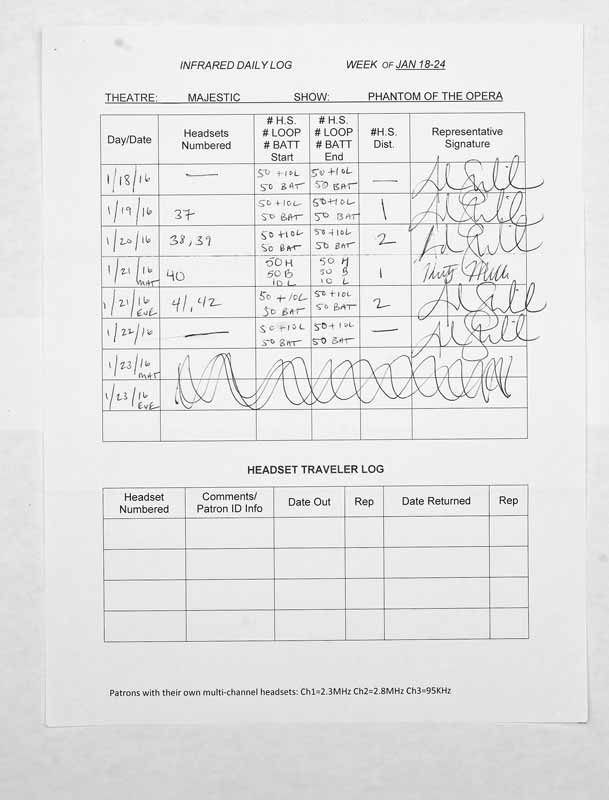 INFRARED DAILY LOG WEEK OF JAN 18-24
THEATRE: MAJESTIC SHOW: PHANTOM OF THE OPERA
Day/Date Headsets Numbered # H.S. # LOOP # BATT Start # H.S. # LOOP # BATT End #H.S. Dist. Representative Signature
1/18/16 — 50 +10L 50 BAT 50 +10L 50 BAT —
1/19/16 37 50 +10L 50 BAT 50+10L 50 BAT 1
1/20/16 38, 39 50 +10L 50 BAT 50 +10L 50 BAT 2
1/21/16 MAT 40 50 H 50 B 10 L 50 H 50 B 10 L 1
1/21/16 EVE 41, 42 50 +10L 50 BAT 50 +10L 50 BAT 2
1/22/16 — 50 +10L 50 BAT 50 +10L 50 BAT —
1/23/16 MAT
1/23/16 EVE
HEADSET TRAVELER LOG
Headset Numbered Comments/ Patron ID Info Date Out Rep Date Returned Rep
Patrons with their own multi-channel headsets: Ch1=2.3MHz Ch2=2.8MHz Ch3=95KHz